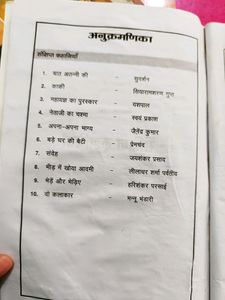 अनुक्रमणिका
संक्षिप्त कहानियाँ
1. बात अठन्नी की - सुदर्शन
2. काकी - सियारामशरण गुप्त
3. महायज्ञ का पुरस्कार - यशपाल
4. नेताजी का चश्मा - स्वयं प्रकाश
5. अपना-अपना भाग्य - जैनेंद्र कुमार
6. बड़े घर की बेटी - प्रेमचंद
7. संदेह - जयशंकर प्रसाद
8. भीड़ में खोया आदमी - लीलाधर शर्मा पर्वतीय
9. भेड़ें और भेड़िए - हरिशंकर परसाई
10. दो कलाकार - मन्नू भंडारी